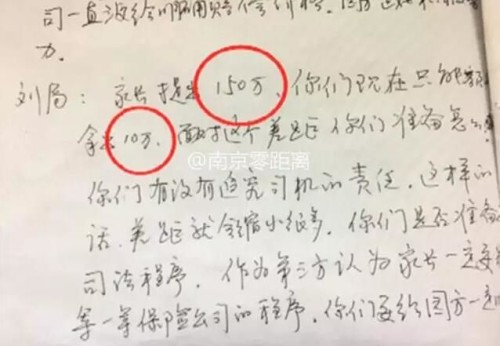 司一直没给
力.
刘局: 家长提出 150万, 你们现在只能
拿出 10万, 面对这个差距 你们准备怎么
@南京零距离
你们有没有追究司机的责任. 这样的
话. 差距就会缩小很多. 你们是否准备
司法程序. 作为第三方认为家长一定要
等一等保险公司的程序. 你们要给园方一